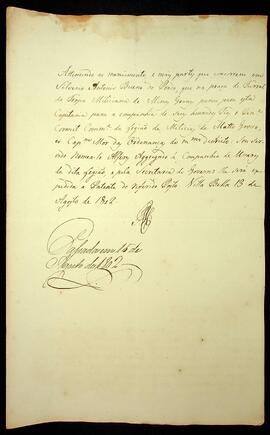 Attendendo ao merecimento e mais partes que concorrem em
Silverio Antonio Bueno do Prado, que na praça de Furriel
da Tropa Miliciana de Minas Geraes passou para esta
Capitania para a companhia de seu
Coronel Comm.e da Legião de Milicias de Matto Grosso,
e Cap.m Mor da Ordenança do m.mo destricto, Sou Ser-
vido nomea-lo Alferes Aggregado á Companhia de
da dita Legião, e pela Secretaria do Governo lhe será ex-
pedida a Patente do referido Posto. Villa Bella 13 de
Agosto de 1812
Passada em 15 de
Agosto de 1812